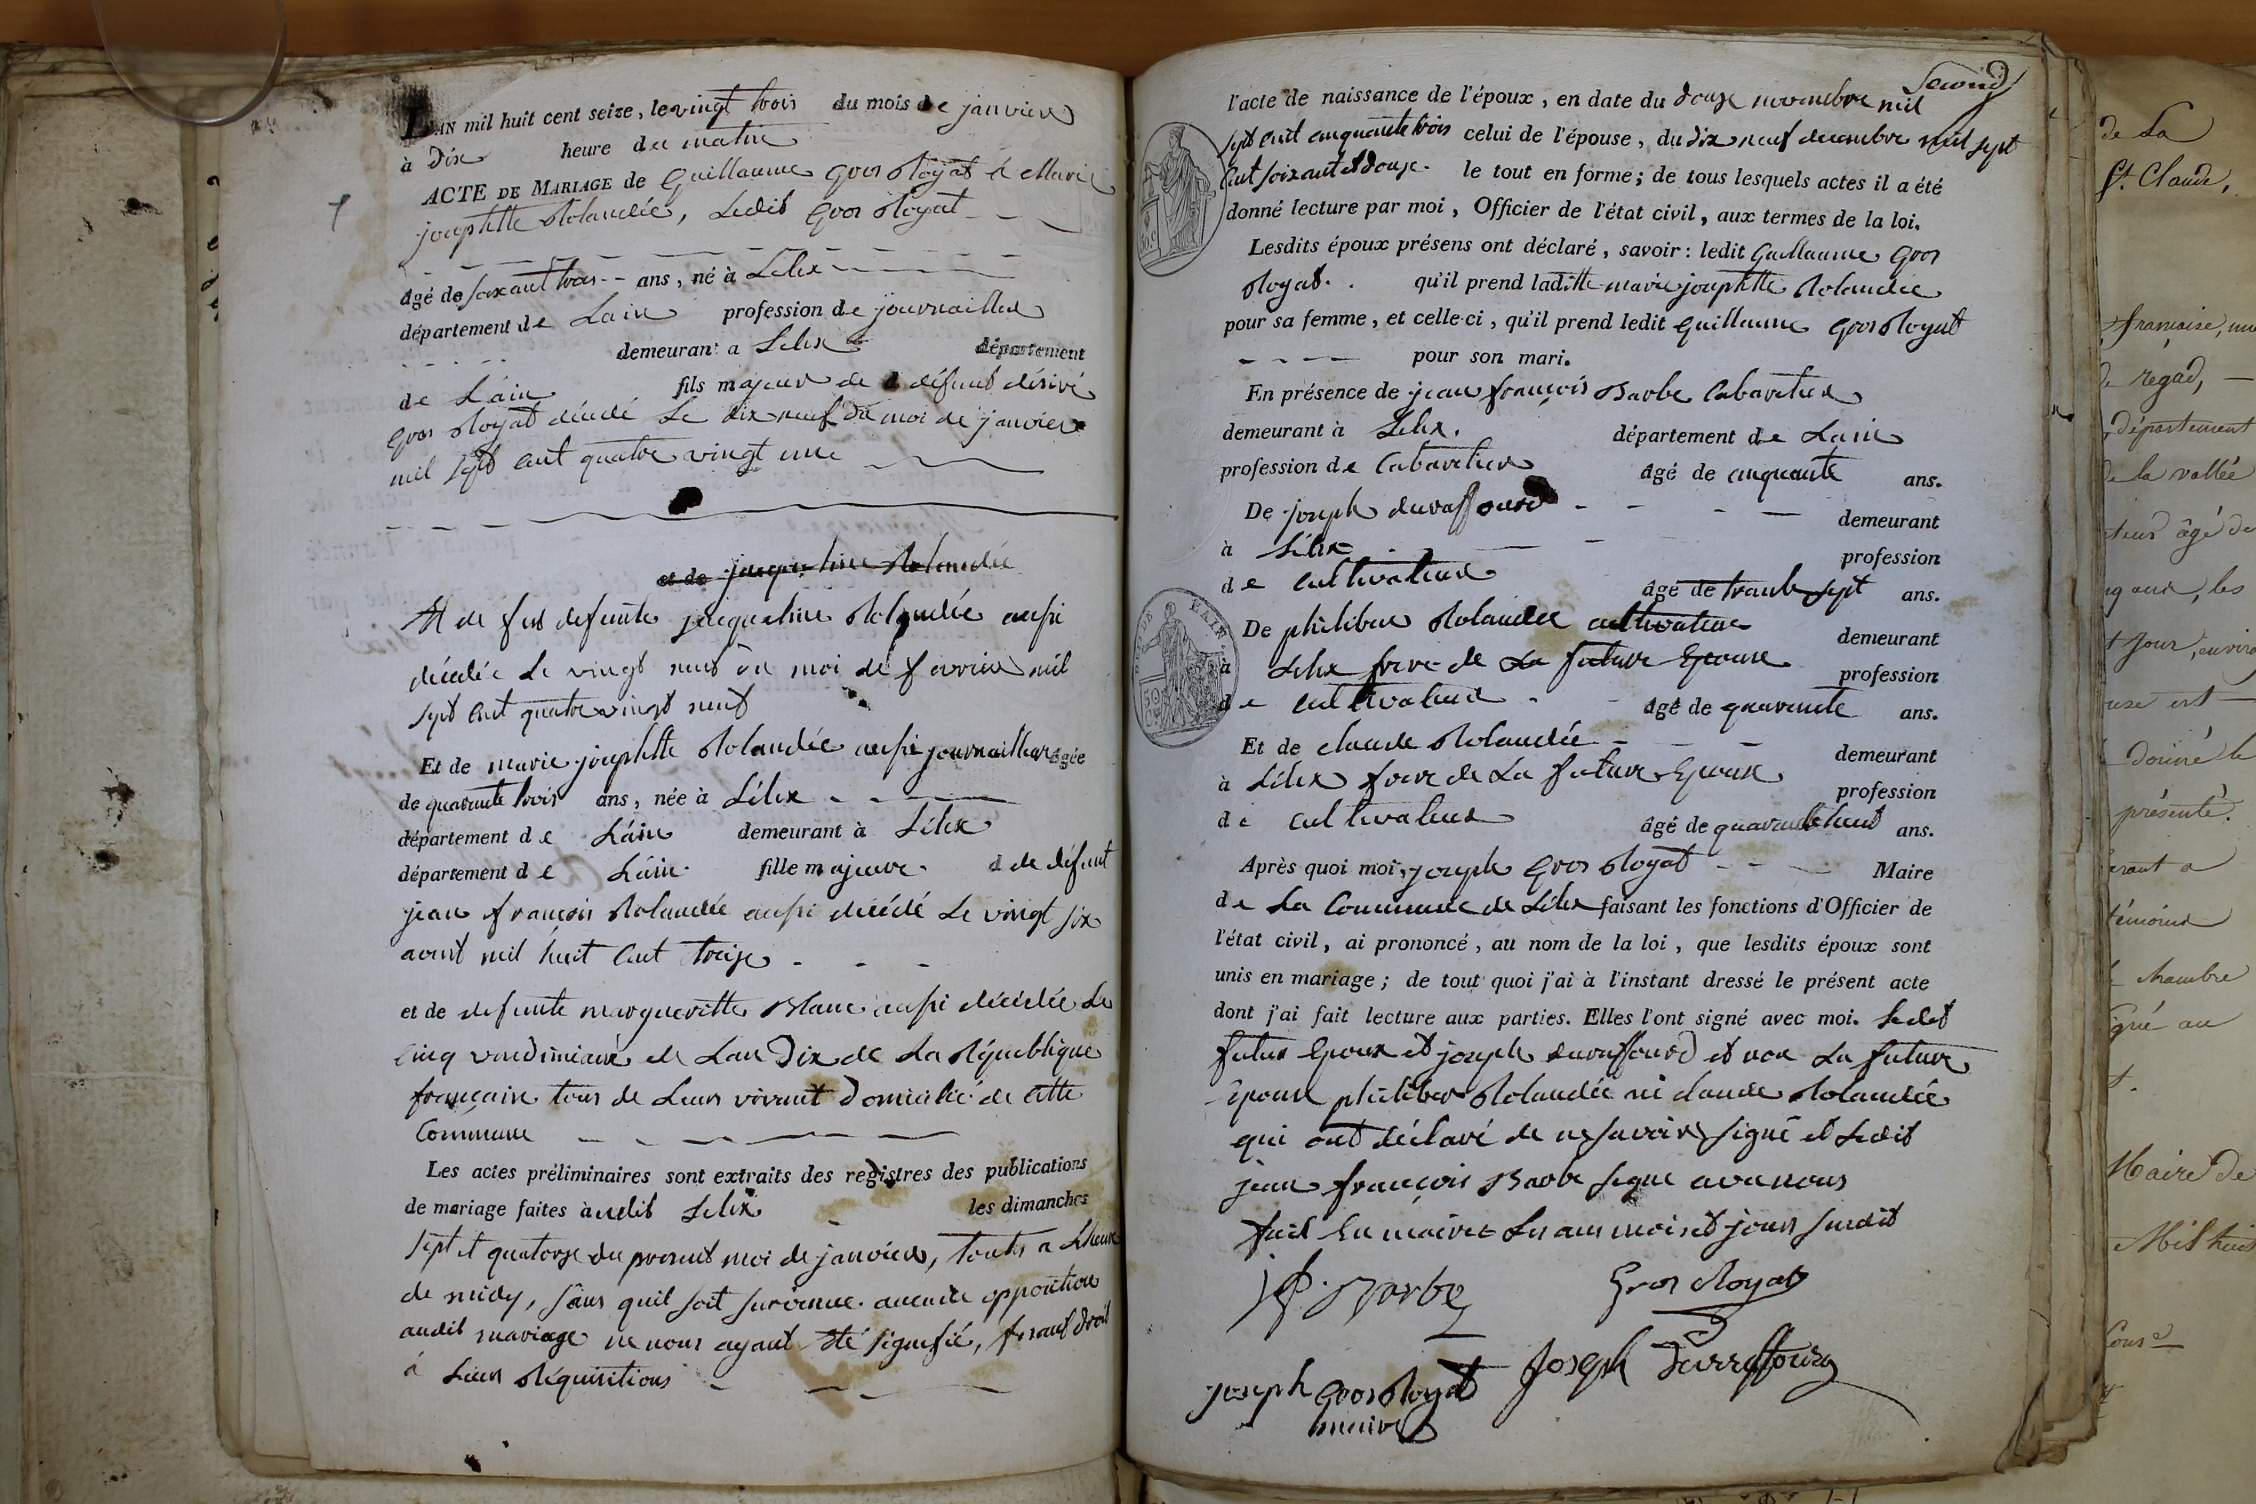 L'AN mil huit cent seize, le vingt trois du mois de janvier
à dix heure du matin
ACTE DE MARIAGE de Guillaume gros Royat et Marie
josephtte Rolandée, Ledit gros Royat
âgé de soixant trois ans, né à Lelex
département de Lain profession de journaillier
demeurant a Lelex département
de L'ain fils majeur de défunt désiré
gros Royat décédé Le dix neuf du moi de janvier
mil sept cent quatre vingt une
et de jacqueline Rolandée
Et de fut defunte jacqueline Rolandée aussi
décédée Le vingt neuf du moi de fevrier mil
sept cent quatre vingt neuf
Et de marie josephtte Rolandée aussi journaillier âgée
de quarante trois ans, née à Lélex
département de L'ain demeurant à Lélex
département de L'ain fille majeure de défunt
jean françois Rolandée aussi décédé Le vingt six
aoust mil huit cent treize
et de defunte margueritte Blanc aussi décédée Le
cinq vendimiaire de Lan Dix de La République
française tous de Leurs vivant domicilié de cette
Commune
Les actes préliminaires sont extraits des registres des publications
de mariage faites audit Lelix les dimanches
sept et quatorze du present moi de janvier, toutes a L'heure
de midy, sans quil soit survenue aucune opposition
audit mariage ne nous ayant été signifié, fesant droit
à Leurs Réquisitions
Second
l'acte de naissance de l'époux, en date du douze novembre mil
sept cent cinquante trois celui de l'épouse, du dix neuf decembre mil sept
Cent soixant et douze. le tout en forme; de tous lesquels actes il a été
donné lecture par moi, Officier de l'état civil, aux termes de la loi.
Lesdits époux présens ont déclaré, savoir: ledit Guillaume gros
Royat. qu'il prend laditte marie josephtte Rolandée
pour sa femme, et celle-ci, qu'il prend ledit Guillaume gros Royat
pour son mari.
En présence de jean françois Barbe Cabaretier
demeurant à Lélex. département de Lain
profession de Cabaretier âgé de cinquante ans.
De joseph duraffourd demeurant
à Lélex profession
de cultivateur âgé de trente sept ans.
De philiber Rolandée cultivateur demeurant
à Lelex frere de La future Epouse profession
de cultivateur âgé de quarante ans.
Et de claude Rolandée demeurant
à Lélex frere de La future Epouse profession
de cultivateur âgé de quarante huit ans.
Après quoi moi, joseph gros Royat Maire
de La Commune de Lélex faisant les fonctions d'Officier de
l'état civil, ai prononcé, au nom de la loi, que lesdits époux sont
unis en mariage; de tout quoi j'ai à l'instant dressé le présent acte
dont j'ai fait lecture aux parties. Elles l'ont signé avec moi. Ledit
futur Epoux et joseph duraffourd et non La future
Epouse philiber Rolandée ni claude Rolandée
qui ont déclaré de ne savoir signé et Ledit
jean françois Barbe signe avenous
fait En mairie Les ans mois et jours susdit
Barbe Gros Royat
joseph gros Royat Joseph Durraffourg
maire
de La
St. Claude,
française,
de regad,
département
de la vallée
âgé de
les
Jour, environ
est
Donné le
présenté.
a
témoins
Chambre
signé au
Maire de
Mil huit